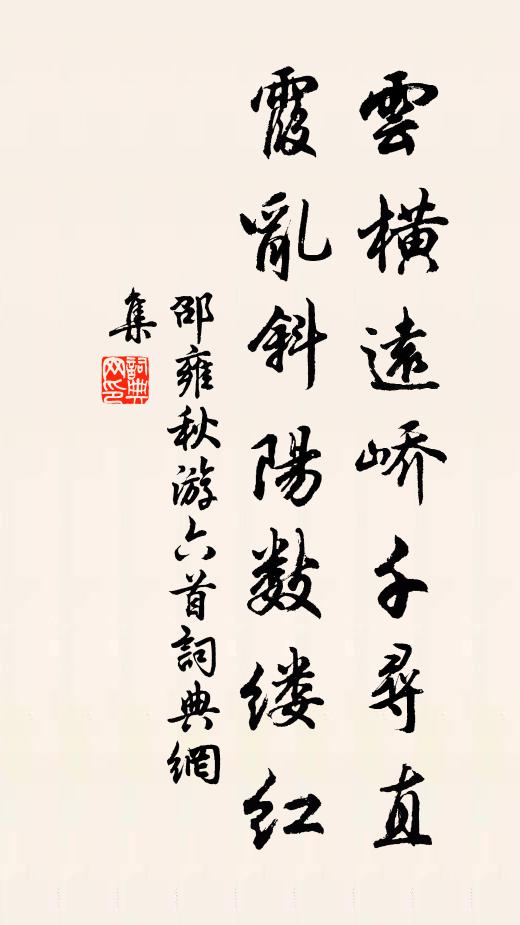 雲橫遠嶠千尋直
霞亂斜陽數縷紅
邵雍秋游六首詞典網
集
詞典
网印